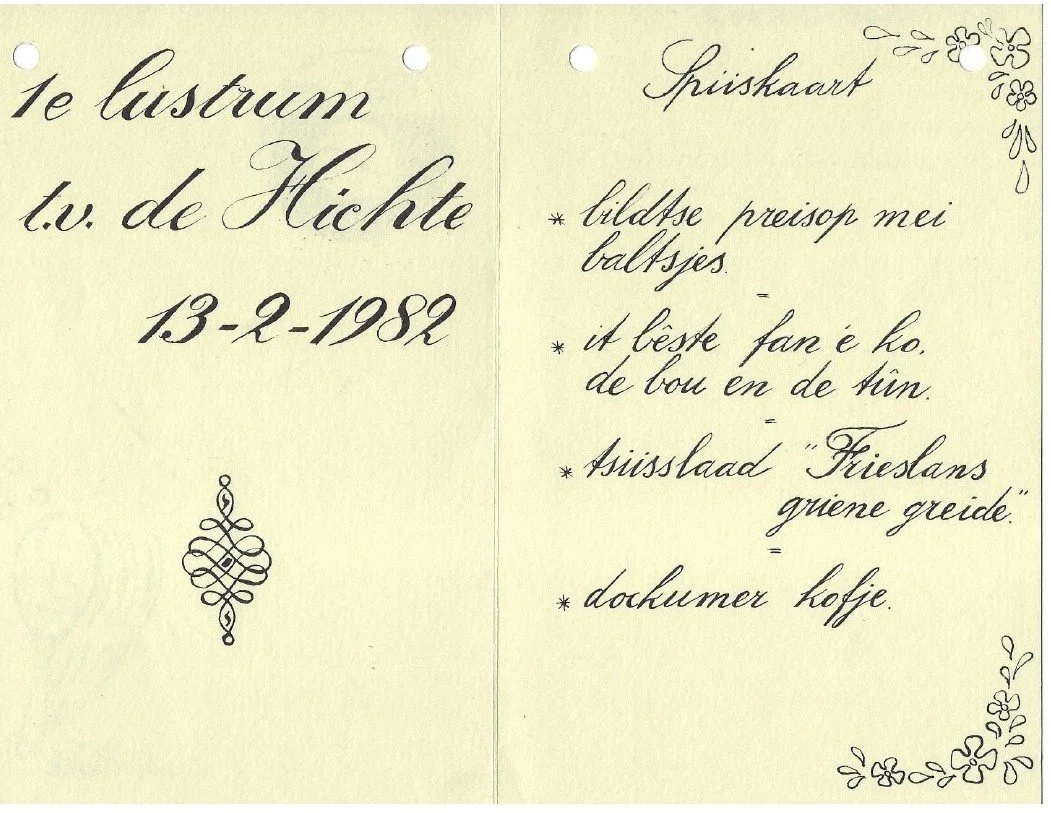 1e lustrum
t.v. de Hichte
13-2-1982
Spiiskaart
* bildtse preisop mei
baltsjes.
=
* it bêste fan 'e ko.
de bou en de tún.
=
* tsiisslaad "Frieslans
griene greide."
=
* dockumer kofje.